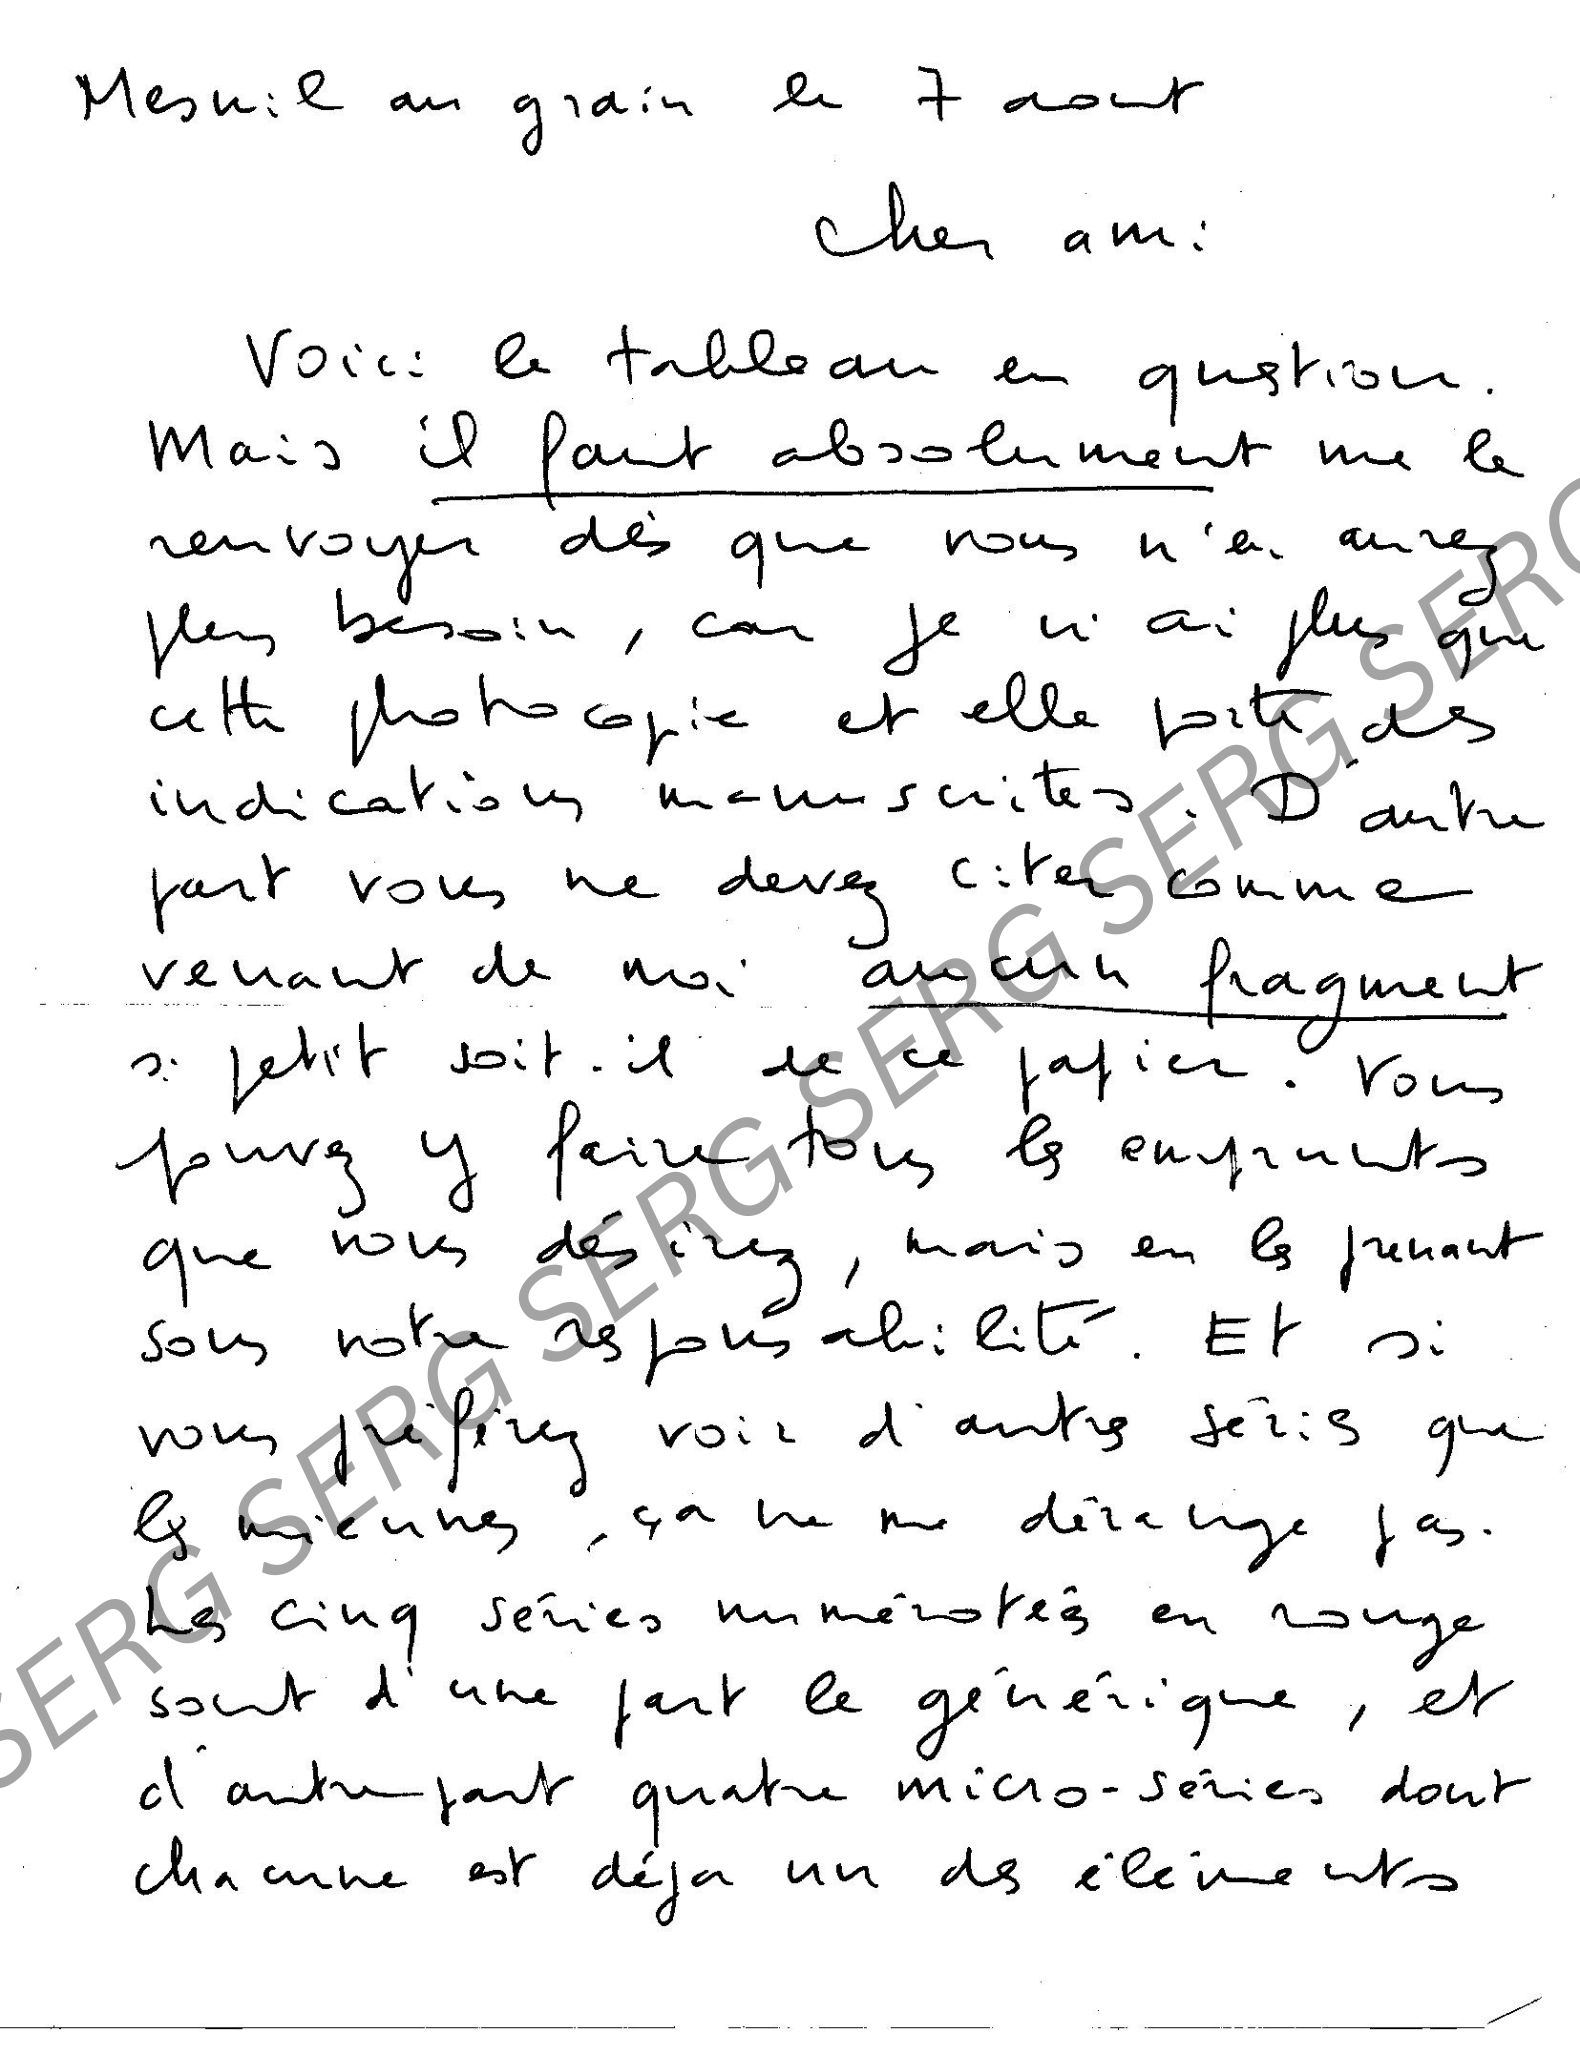 Mesnil au grain le 7 aout
Cher ami
Voici le tableau en question.
Mais il faut absolument me le
renvoyer dès que vous n'en aurez
plus besoin, car je n'ai plus que
cette photocopie et elle porte des
indications manuscrites. D'autre
part vous ne devez citer comme
venant de moi aucun fragment
si petit soit-il de ce papier. Vous
pouvez y faire tous les emprunts
que vous désirez, mais en les prenant
sous votre responsabilité. Et si
vous préférez voir d'autres séries que
les miennes, ça ne me dérange pas.
Les cinq séries numérotées en rouge
sont d'une part le générique, et
d'autre part quatre micro-séries dont
chacune est déja un des éléments
SERG SERG SERG SERG SERG SERG SERG SERG